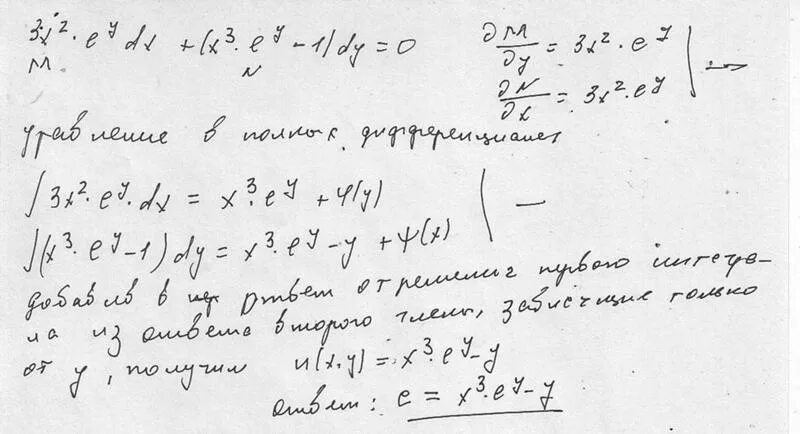 3x²·e^y dx + (x³·e^y − 1) dy = 0
M N
∂M/∂y = 3x²·e^y
∂N/∂x = 3x²·e^y
уравнение в полных дифференциалах
∫ 3x²·e^y·dx = x³·e^y + φ(y)
∫(x³·e^y − 1) dy = x³·e^y − y + ψ(x)
добавив в ответ от первого интегра-
ла из ответа второго члены, зависящие только
от y, получим u(x,y) = x³·e^y − y
ответ: c = x³·e^y − y